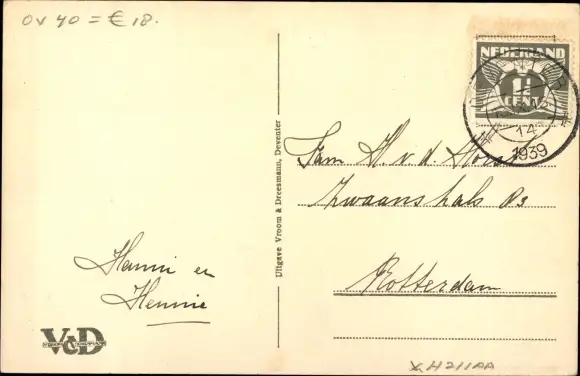 OV 40 = € 18.
NEDERLAND
1½
CENT
14
1939
Uitgave Vroom & Dreesmann, Deventer
Fam H. v. d.
Zwaanshals
Rotterdam
Hanni en
Hennie
V&D
XH211AA